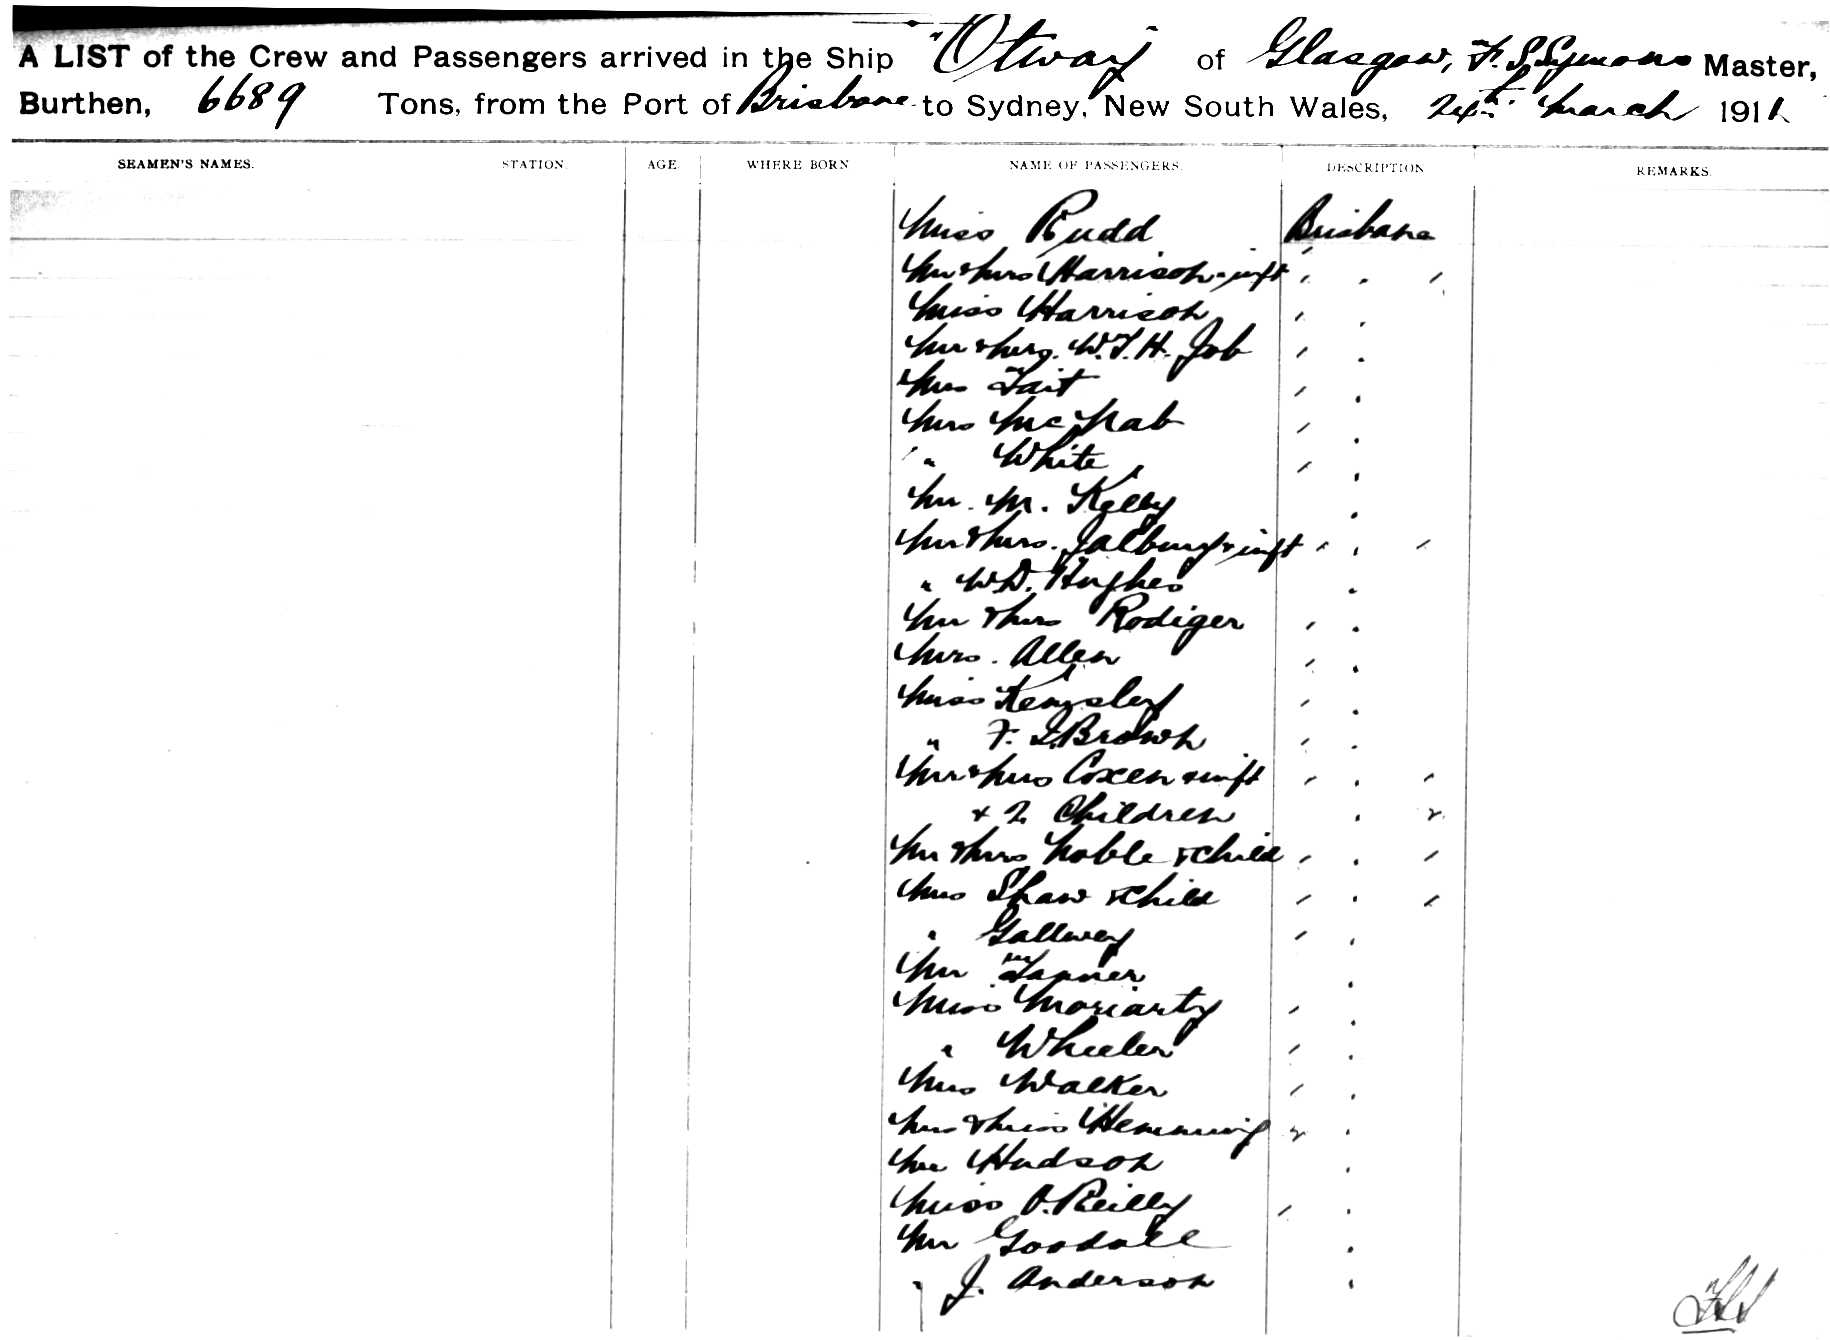 A LIST of the Crew and Passengers arrived in the Ship "Otway" of Glasgow, F. S. Symons Master,
Burthen, 6689 Tons, from the Port of Brisbane to Sydney, New South Wales, 24th March 1911
SEAMEN'S NAMES. STATION. AGE. WHERE BORN NAME OF PASSENGERS. DESCRIPTION REMARKS.
Miss Rudd Brisbane
Mr & Mrs Harrison & inft " " "
Miss Harrison " "
Mr & Mrs. W. T. H. Job " "
Mrs Tait " "
Mrs McNab " "
" White " "
Mr. M. Kelly "
Mr & Mrs. & inft " " "
" W. D. Hughes "
Mr & Mrs Rodiger " "
Mrs. Allen " "
Miss " "
" F. Brown " "
Mr & Mrs Coxen & inft " " "
& 2 Children " "
Mr & Mrs Noble & Child " " "
Mrs Shaw & Child " " "
" Gallwey " "
Mr Tanner "
Miss Moriarty " "
" Wheeler " "
Mrs Walker " "
Mrs & Miss Hemming "
Mr Hudson "
Miss O'Reilly " "
Mr Goodall "
" J. Anderson "